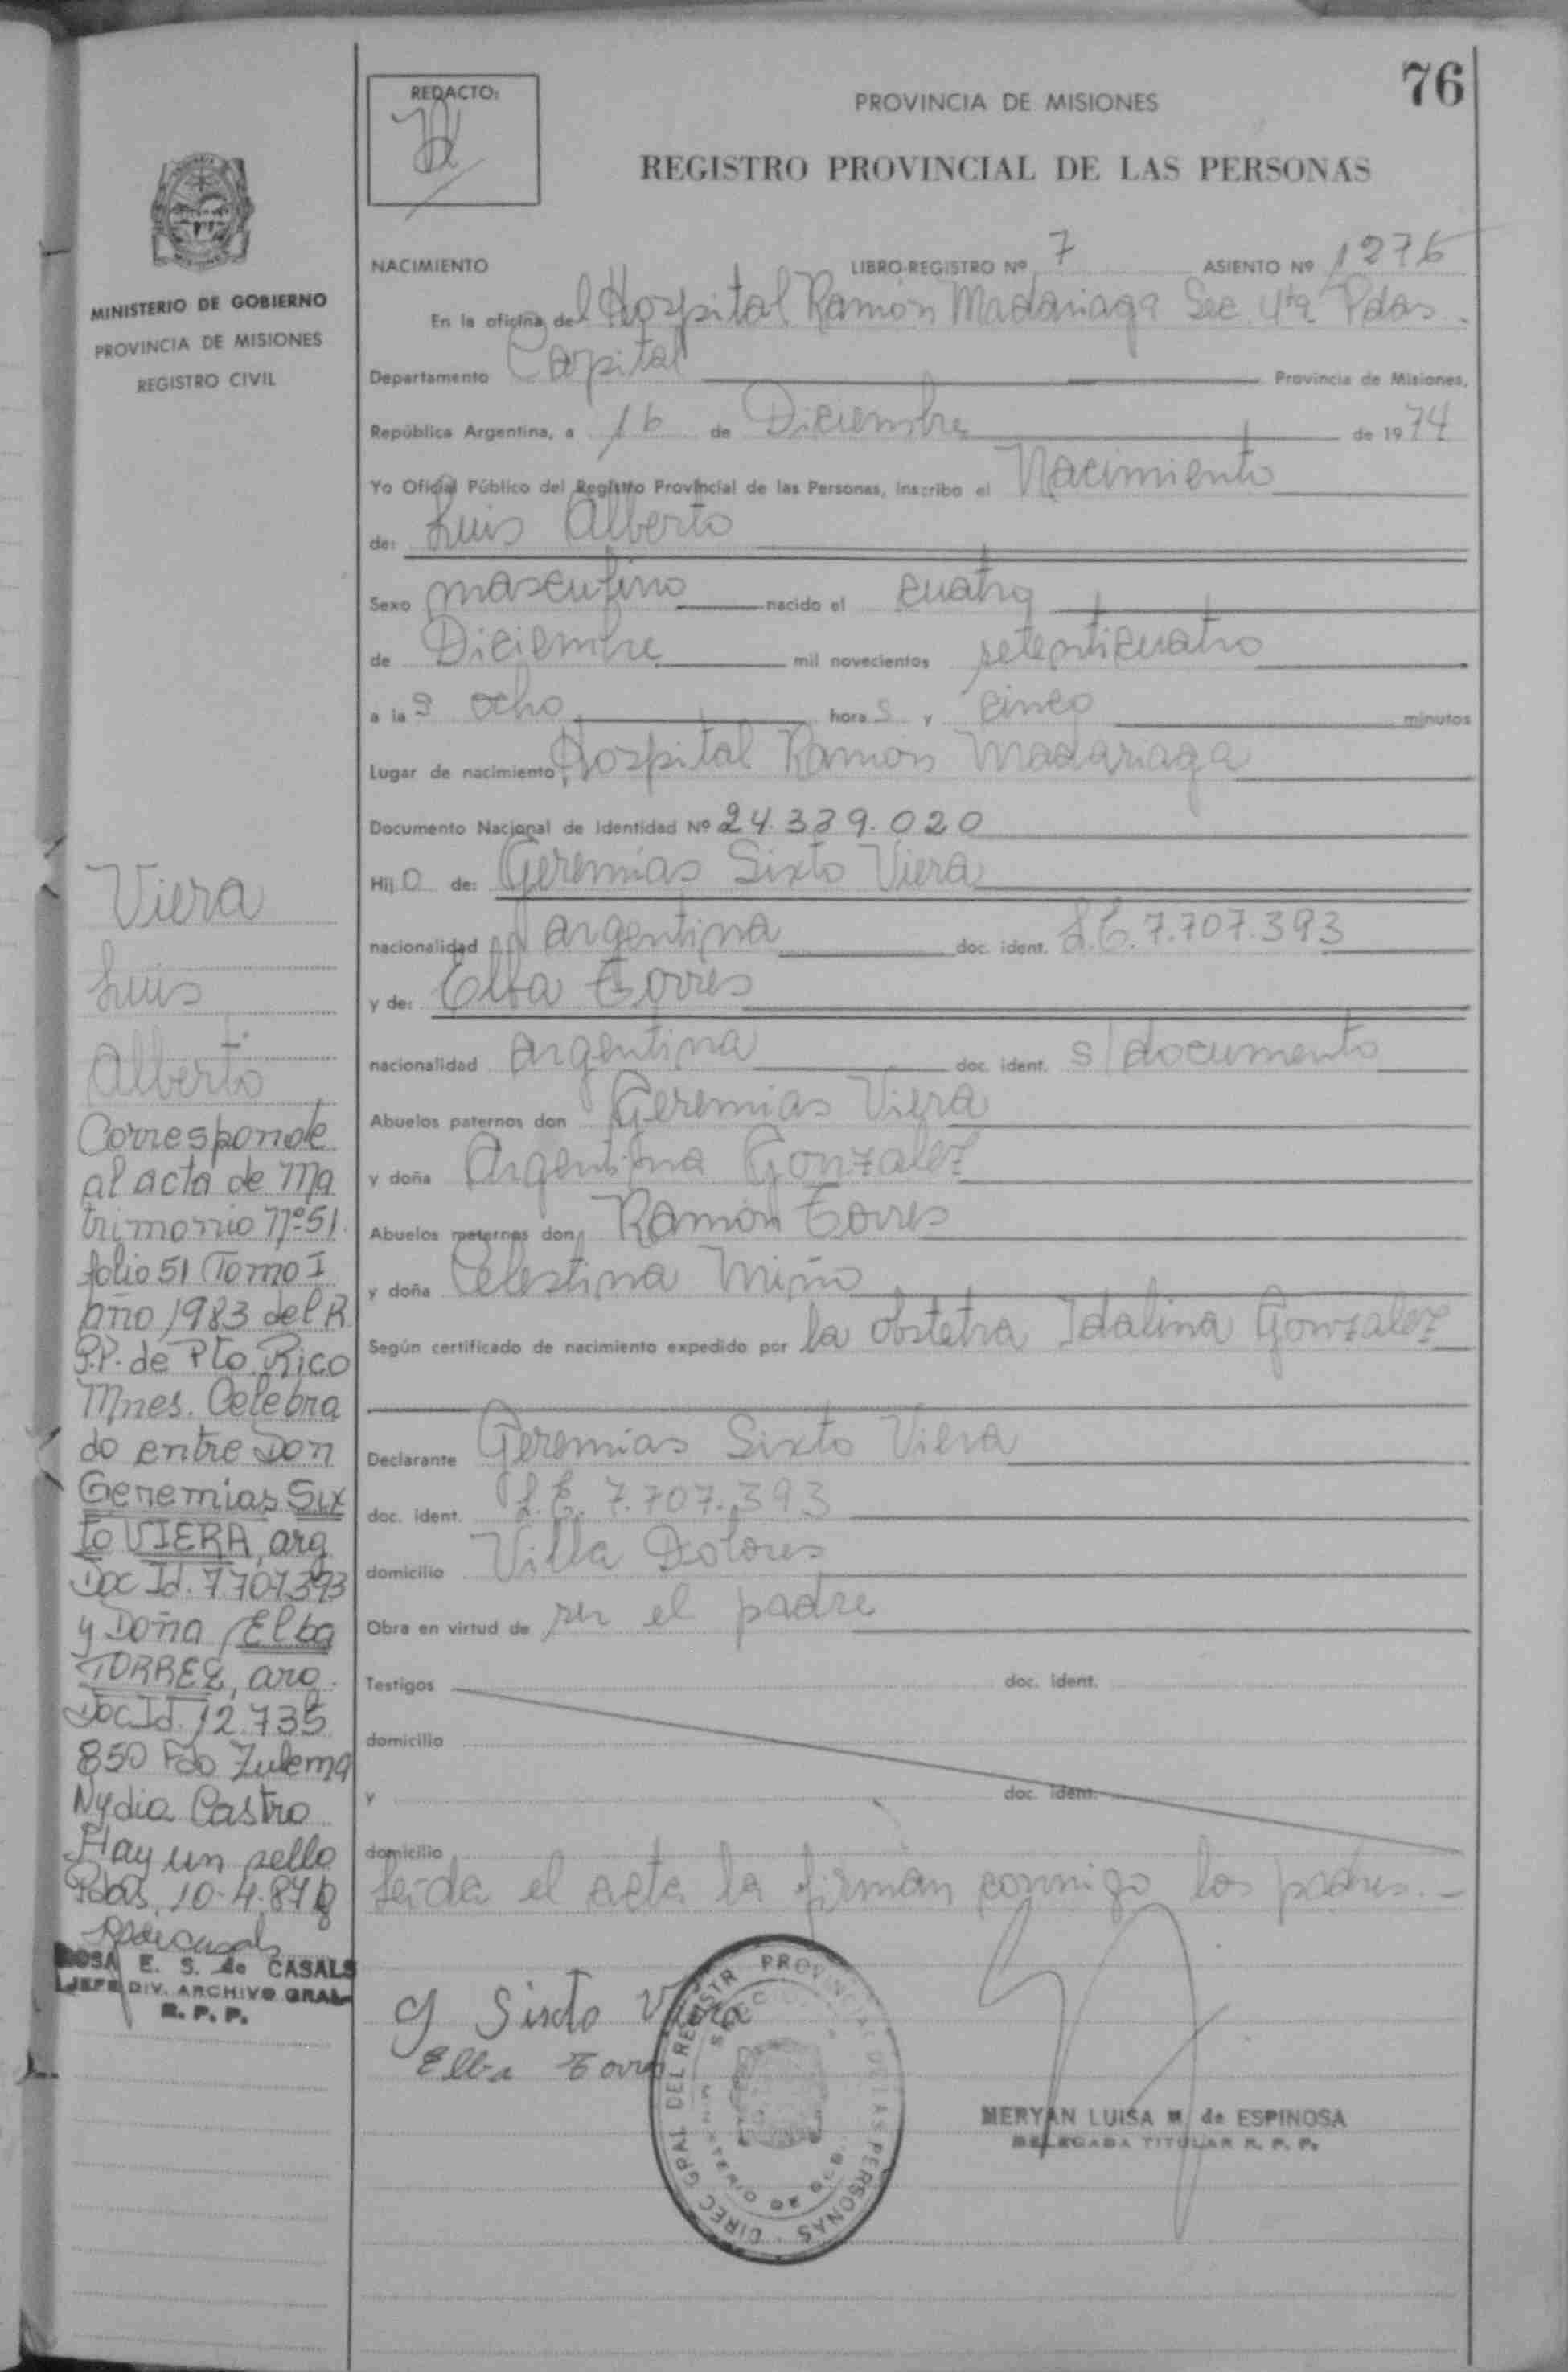 76
REDACTO:
PROVINCIA DE MISIONES
REGISTRO PROVINCIAL DE LAS PERSONAS
MINISTERIO DE GOBIERNO
PROVINCIA DE MISIONES
REGISTRO CIVIL
NACIMIENTO LIBRO-REGISTRO Nº 7 ASIENTO Nº 1276
En la oficina del Hospital Ramón Madariaga Sec. 4ta. Pdas.
Departamento Capital Provincia de Misiones,
República Argentina, a 16 de Diciembre de 1974
Yo Oficial Público del Registro Provincial de las Personas, inscribo el Nacimiento
de: Luis Alberto
Sexo masculino nacido el cuatro
de Diciembre mil novecientos setenticuatro
a las ocho horas y cinco minutos
Lugar de nacimiento Hospital Ramón Madariaga
Documento Nacional de Identidad Nº 24.339.020
Hijo de: Geremias Sixto Viera
nacionalidad argentina doc. ident. L.E. 7.707.393
y de: Elba Torres
nacionalidad argentina doc. ident. s/documento
Abuelos paternos don Geremias Viera
y doña Argentina Gonzalez
Abuelos maternos don Ramón Torres
y doña Celestina Miño
Según certificado de nacimiento expedido por la obstetra Idalina Gonzalez
Declarante Geremias Sixto Viera
doc. ident. L.E. 7.707.393
domicilio Villa Dolores
Obra en virtud de ser el padre
Testigos doc. ident.
domicilio
y doc. ident.
domicilio
Leida el acta la firman conmigo los padres.-
G Sixto Viera
Elba Torres
DIREC GRAL DEL REGISTR PROVINCIAL DE LAS PERSONAS
MERYAN LUISA M. de ESPINOSA
DELEGADA TITULAR R. P. P.
Viera
Luis
Alberto
Corresponde
al acta de Ma
trimonio Nº 51.
folio 51 Tomo I
año 1983 del R.
P.P. de Pto. Rico
Mnes. Celebra
do entre Don
Geremias Six
to VIERA, arg
Doc Id. 7.707.393
y Doña Elba
TORRES, arg.
Doc Id. 12.735
850 Fdo Zulema
Nydia Castro
Hay un sello
Pdas, 10-4-87
ROSA E. S. de CASALS
JEFE DIV. ARCHIVO GRAL
R. P. P.